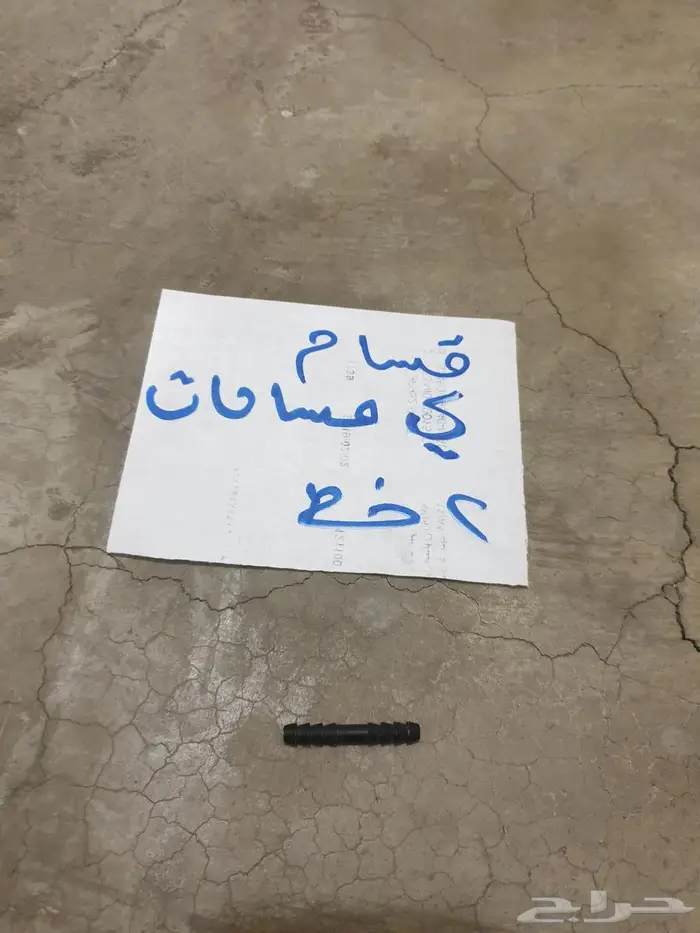 قسام
لي مساحات
٢ خط
حراج